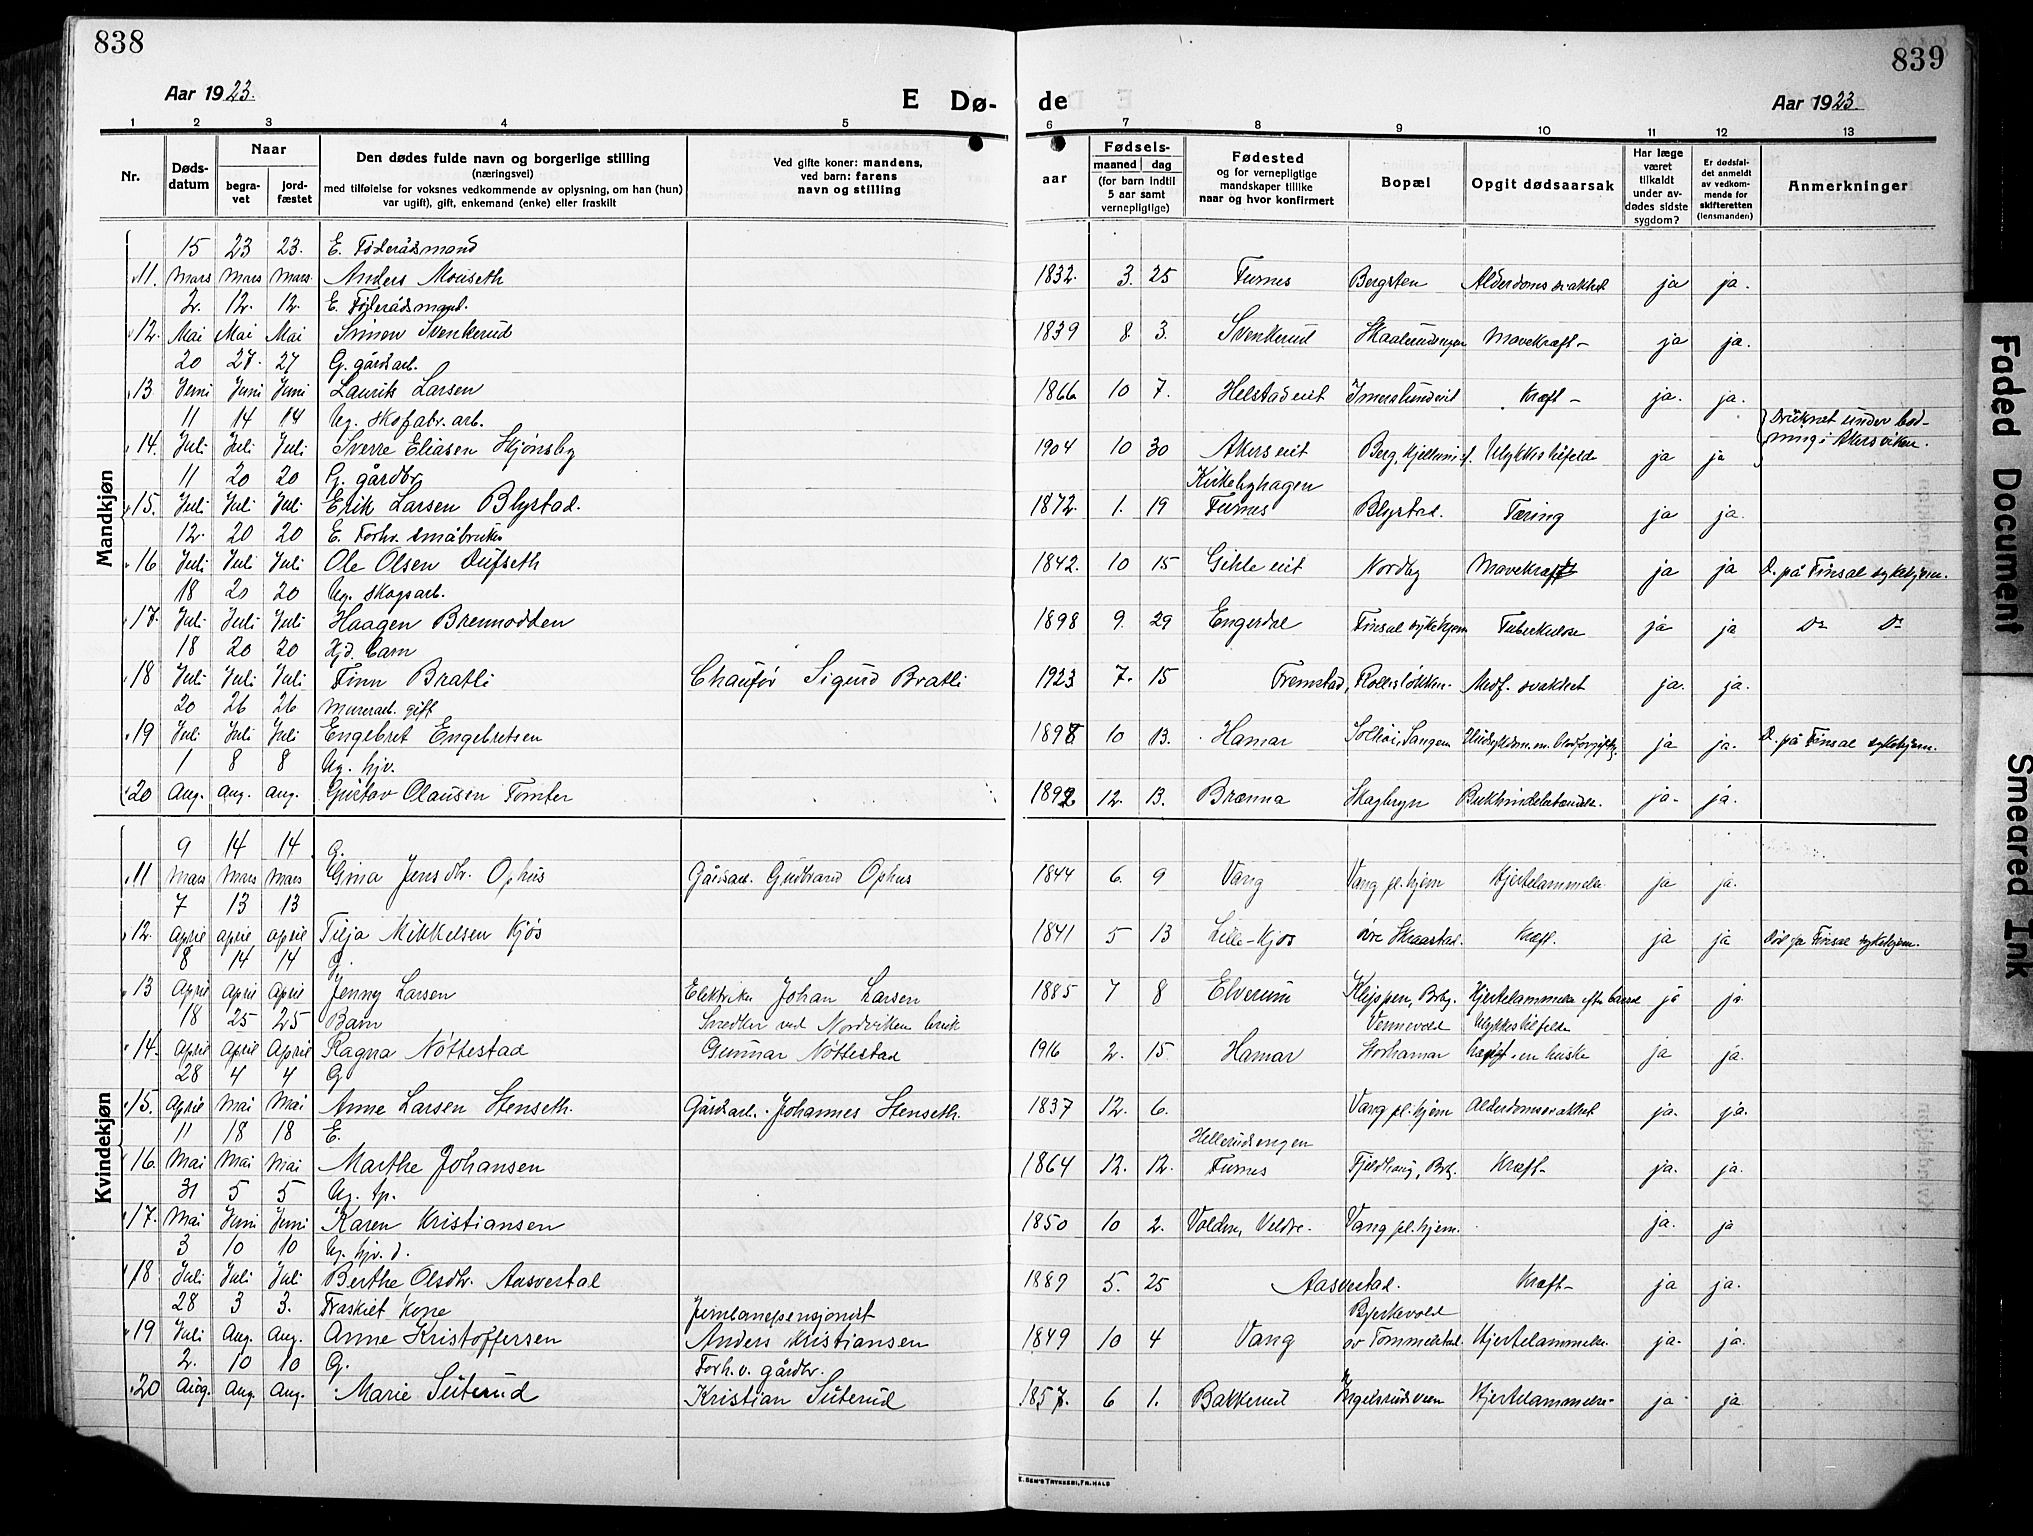 838
839
Aar 1923.
E Dø-
de
Aar 1923.
1 2 3 4 5 6 7 8 9 10 11 12 13
Nr.
Døds-datum
Naar
begra-vet
jord-fæstet
Den dødes fulde navn og borgerlige stilling
(næringsvei)
med tilføielse for voksnes vedkommende av oplysning, om han (hun)
var ugift), gift, enkemand (enke) eller fraskilt
Ved gifte koner: mandens,
ved barn: farens
navn og stilling
Fødsels-
aar
maaned dag
(for barn indtil
5 aar samt
vernepligtige)
Fødested
og for vernepligtige
mandskaper tillike
naar og hvor konfirmert
Bopæl
Opgit dødsaarsak
Har læge
været
tilkaldt
under av-
dødes sidste
sygdom?
Er dødsfal-
det anmeldt
av vedkom-
mende for
skifteretten
(lensmanden)
Anmerkninger
Mandkjøn
15 23 23. E. Føderådsmand
11. Mars Mars Mars. Anders Mouseth 1832. 3. 25 Furnes Bergsten Alderdomssvakhet ja ja.
2. 12. 12. E. Føderådsmand.
12. Mai Mai Mai Simen Svenkerud 1839 8. 3. Svenkerud Mavekræft- ja ja.
20 27. 27 G. gårdsarb.
13 Juni Juni Juni Laurits Larsen 1866 10 7. Helstadeiet Imerslundeiet Kræft- ja. ja.
11 14 14 Ug. skofabr. arb. Druknet under bad-
14. Juli Juli Juli Sverre Eliasen Skjønsby 1904 10 30 Akerseiet Ulykkestilfelde ja ja ning i Akersviken.
11 20 20 G. gårdbr. Kirkebyhagen
15. Juli Juli Juli Erik Larsen Blystad. 1872. 1. 19 Furnes Blystad. Tæring ja ja.
12. 20 20 E. Forhv. småbruker
16 Juli Juli Juli Ole Olsen Dufseth 1842. 10 15 Gihle eiet Nordby Mavekræft ja ja D. på Finsal sykehjem.
18 20 20 Ug. skogsarb.
17. Juli Juli Juli Haagen Brennodden 1898 9. 29 Engerdal Finsal sykehjem Tuberkulose ja ja Do Do
18 20 20 Hjd. barn
18 Juli Juli Juli Finn Bratli Chaufør Sigurd Bratli 1923 7. 15 Fremstad, Rollisløkken. Medf. svakhet ja. ja.
20 26 26 Murerarb. gift
19 Juli Juli Juli Engebret Engebretsen 1898 10 13. Hamar ja ja. D. på Finsal sykehjem.
1 8 8 Ug. hjv.
20 Aug. Aug. Aug. Gustav Olausen Tomter 1892 12. 13. Brænna Skagbryn Bukhindebetændelse. ja. ja.
Kvindekjøn
9 14 14 G.
11 Mars Mars Mars Gina Jensdtr. Ophus Gårdsarb. Gudbrand Ophus 1844 6. 9 Vang Vang pl. hjem Hjertelammelse ja ja.
7 13 13
12. April April April Tilja Mikkelsen Kjøs 1841 5 13 Lille-Kjøs øvre Skraastad. Kræft. ja ja Død på Finsal sykehjem.
8 14 14 G.
13 April April April Jenny Larsen Elektriker Johan Larsen 1885 7 8 Elverum Klypsen, Brby. Hjertelammelse efter barsel ja ja.
18 25 25 Barn Snedker ved Nordviken bruk Vennevold Ulykkestilfelde
14. April April April Ragna Nøttestad Gunnar Nøttestad 1916 2. 15. Hamar Storhamar ja ja.
28 4 4 G.
15. April Mai Mai Anne Larsen Stenseth. Gårdsarb. Johannes Stenseth. 1837 12. 6. Vang pl. hjem Alderdomssvakhet ja. ja.
11 18 18 E. Hellerudsengen
16. Mai Mai Mai Marthe Johansen 1864 12. 12. Furnes Fjeldhaug, Brby. Kræft- ja. ja.
31 5 5 Ug. tp.
17. Mai Juni Juni Karen Kristiansen 1850 10 2. Volden, Veldre. Vang pl. hjem. ja. ja
3 10 10 Ug. hjv. d.
18 Juli Juli Juli Berthe Olsdtr. Aasvestad 1889 5. 25 Aasvestad. Kræft- ja ja.
28 3 3. Fraskilt kone Jernbanepensjonist Bjerkevold
19 Juli Aug. Aug. Anne Kristoffersen Anders Kristiansen 1849 10 4 Vang øv Tommelstad Hjertelammelse ja. ja.
2. 10 10 G. Forh.v. gårdbr.
20 Aug. Aug. Aug. Marie Siterud Kristian Siterud 1857. 6 1. Bakkerud Hjertelammelse ja ja
E. SEM'S TRYKKERI, FR.HALD
Faded Document
Smeared Ink